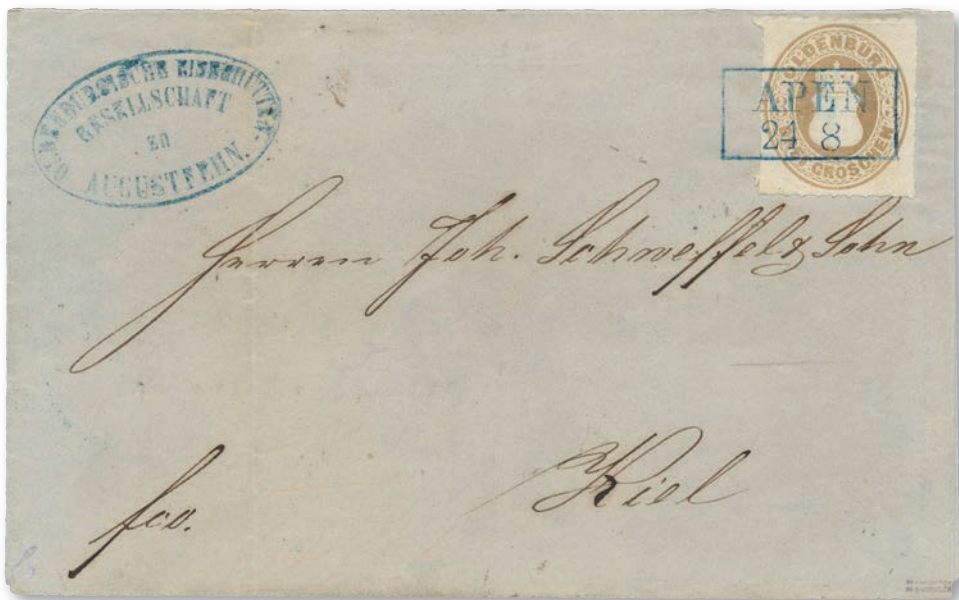 OLDENBURGISCHE EISENHÜTTEN-
GESELLSCHAFT
ZU
AUGUSTFEHN.
OLDENBURG
GROSCHEN
APEN
24 8
Herren Joh. Schweffel & Sohn
Kiel
fco.